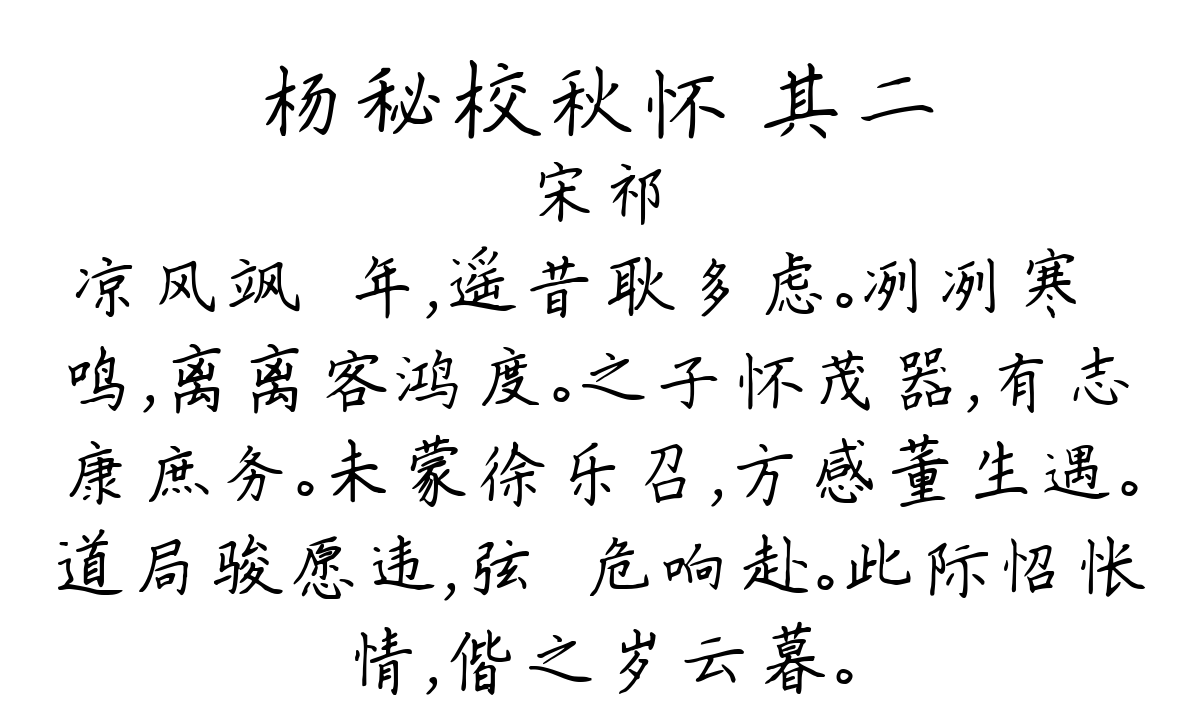 杨秘校秋怀 其二
宋祁
凉风飒 年,遥昔耿多虑。冽冽寒
鸣,离离客鸿度。之子怀茂器,有志
康庶务。未蒙徐乐召,方感董生遇。
道局骏愿违,弦 危响赴。此际怊怅
情,偕之岁云暮。